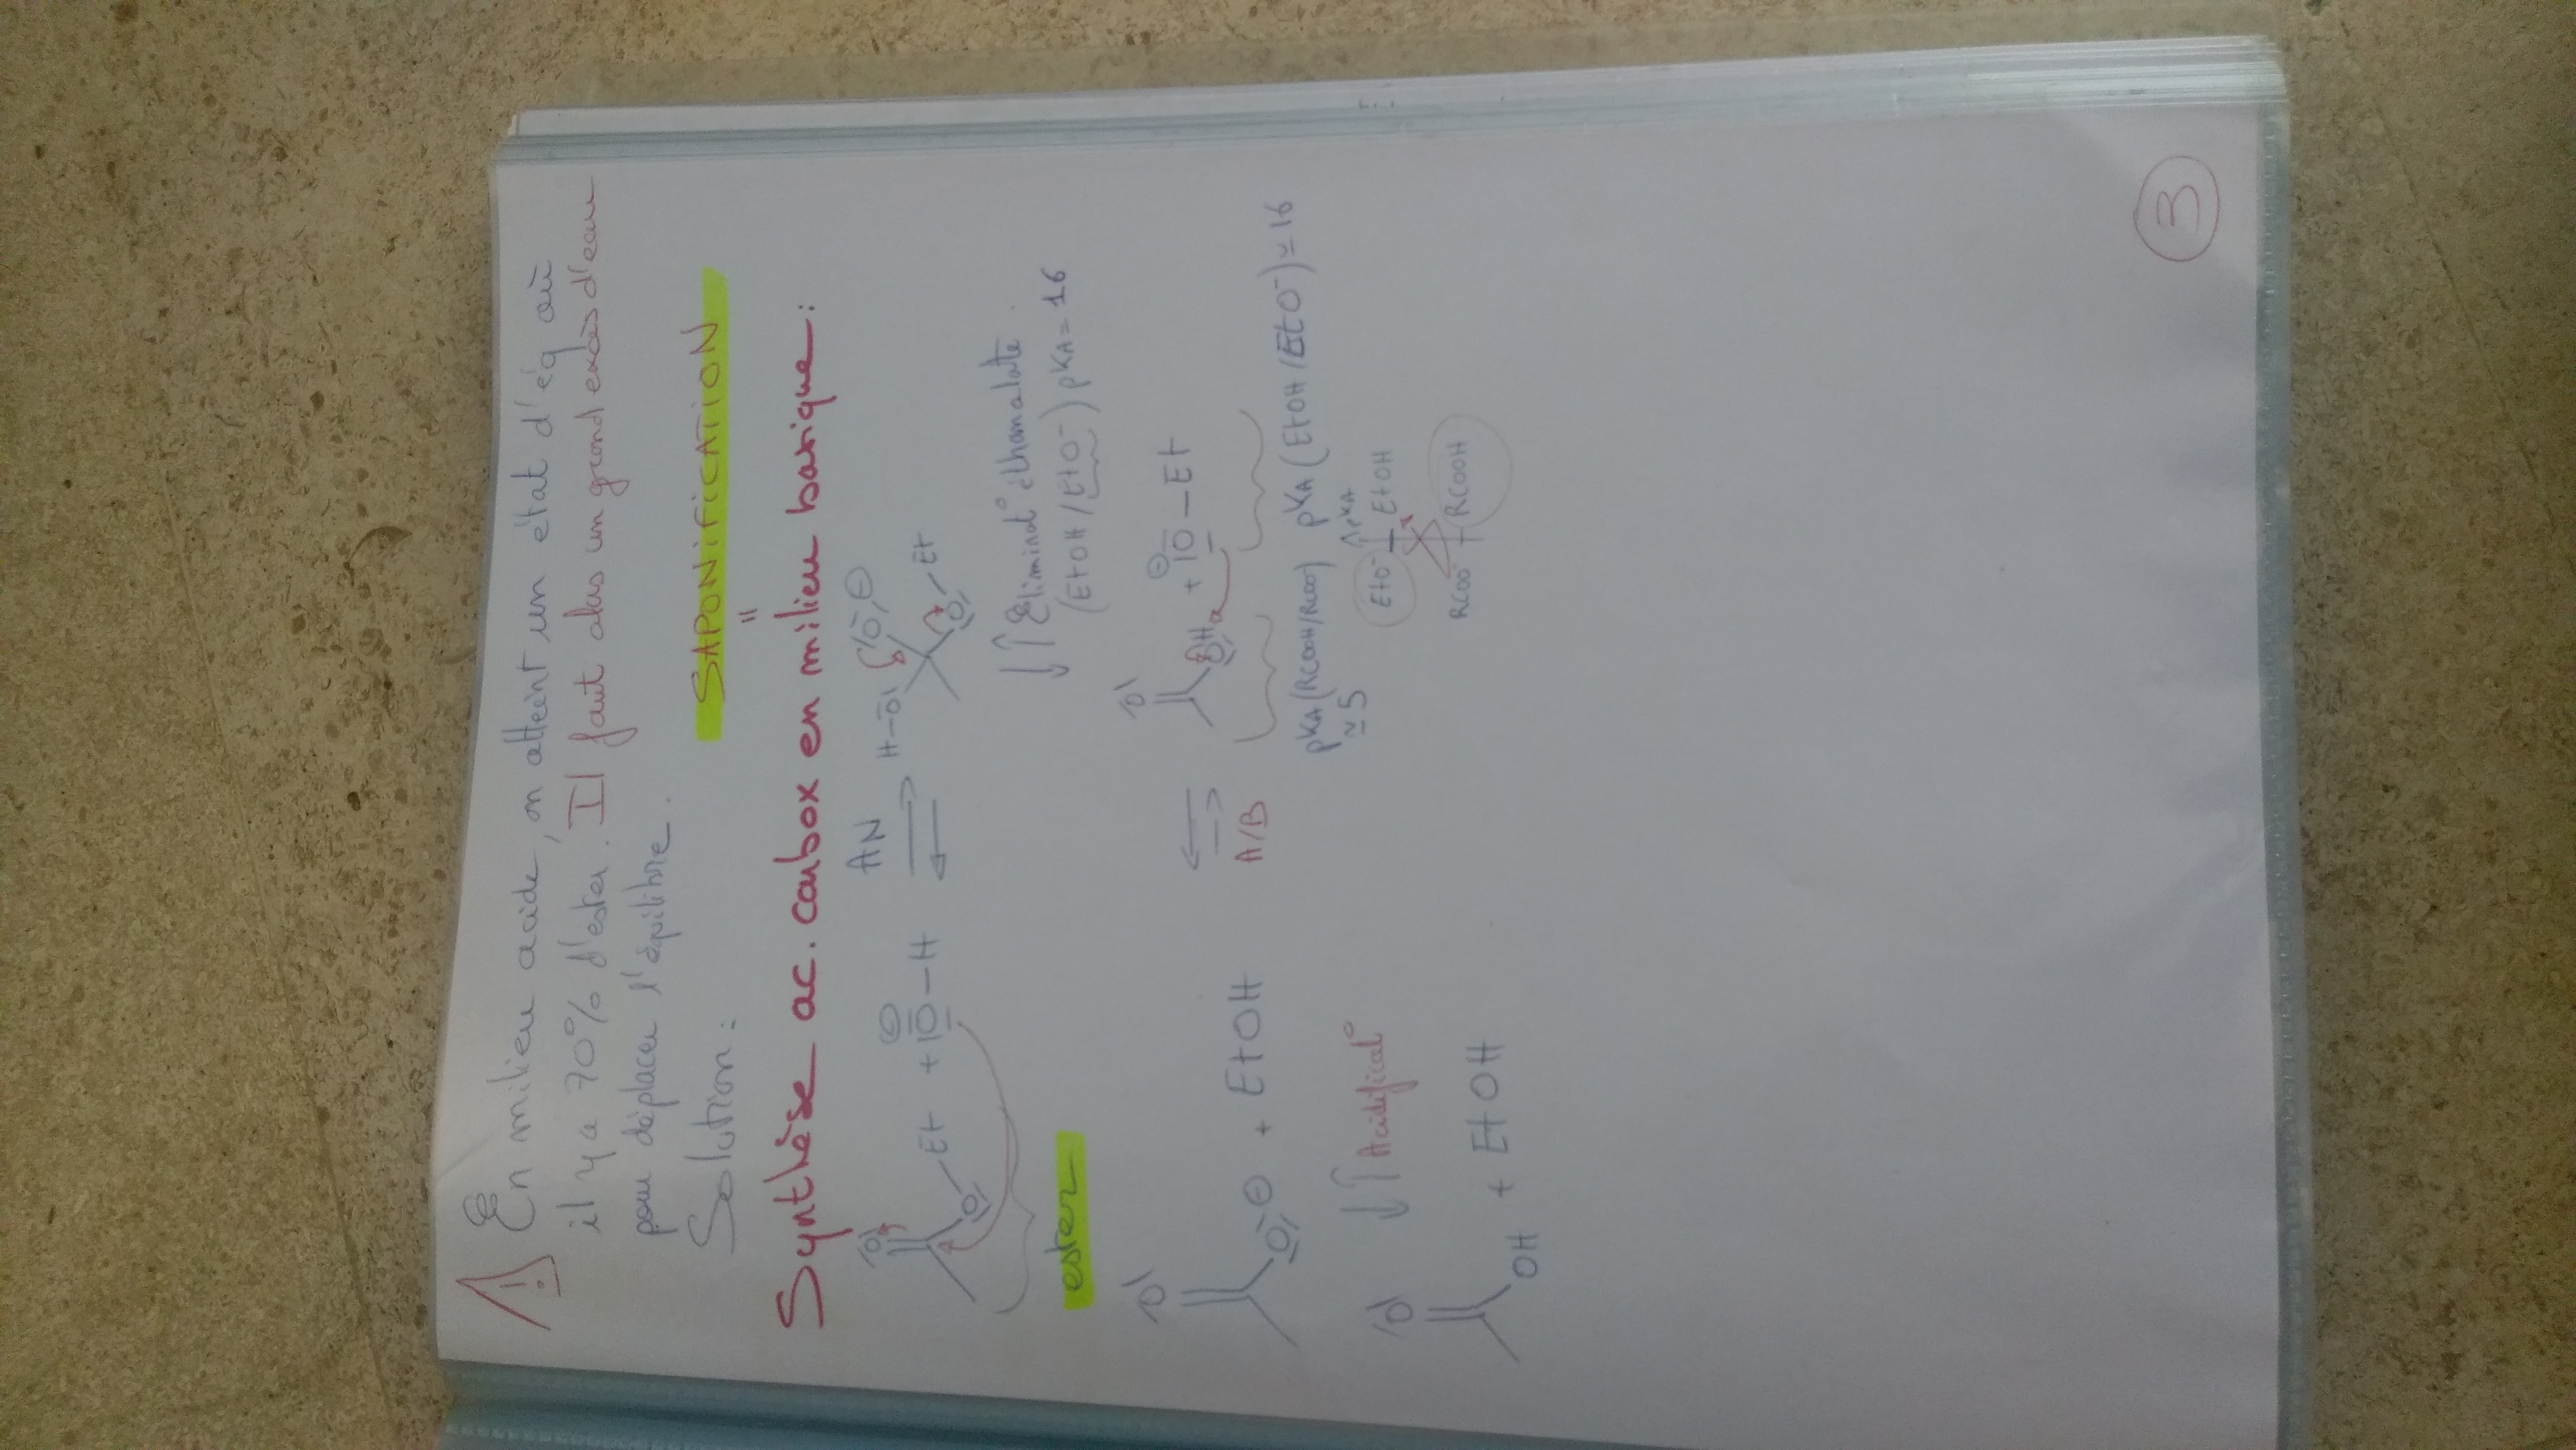 En milieu acide, on atteint un état d'éq où
il y a 70% d'ester. Il faut dans un grand excès d'eau
pour déplacer l'équilibre.
Solution:
SAPONIFICATION
=
Synthèse ac. carbox en milieu basique:
AN
Et + |O-H
H-O
O-Et
ester
Eliminat° éthanolate.
(EtOH/EtO⁻) pKA=16
+ EtOH
A/B
OH + |O-Et
pKA(RCOOH/RCOO⁻) pKA(EtOH/EtO⁻)≃16
≃5
↑pKA
EtO⁻ EtOH
RCOO⁻ RCOOH
Acidificat°
OH + EtOH
3